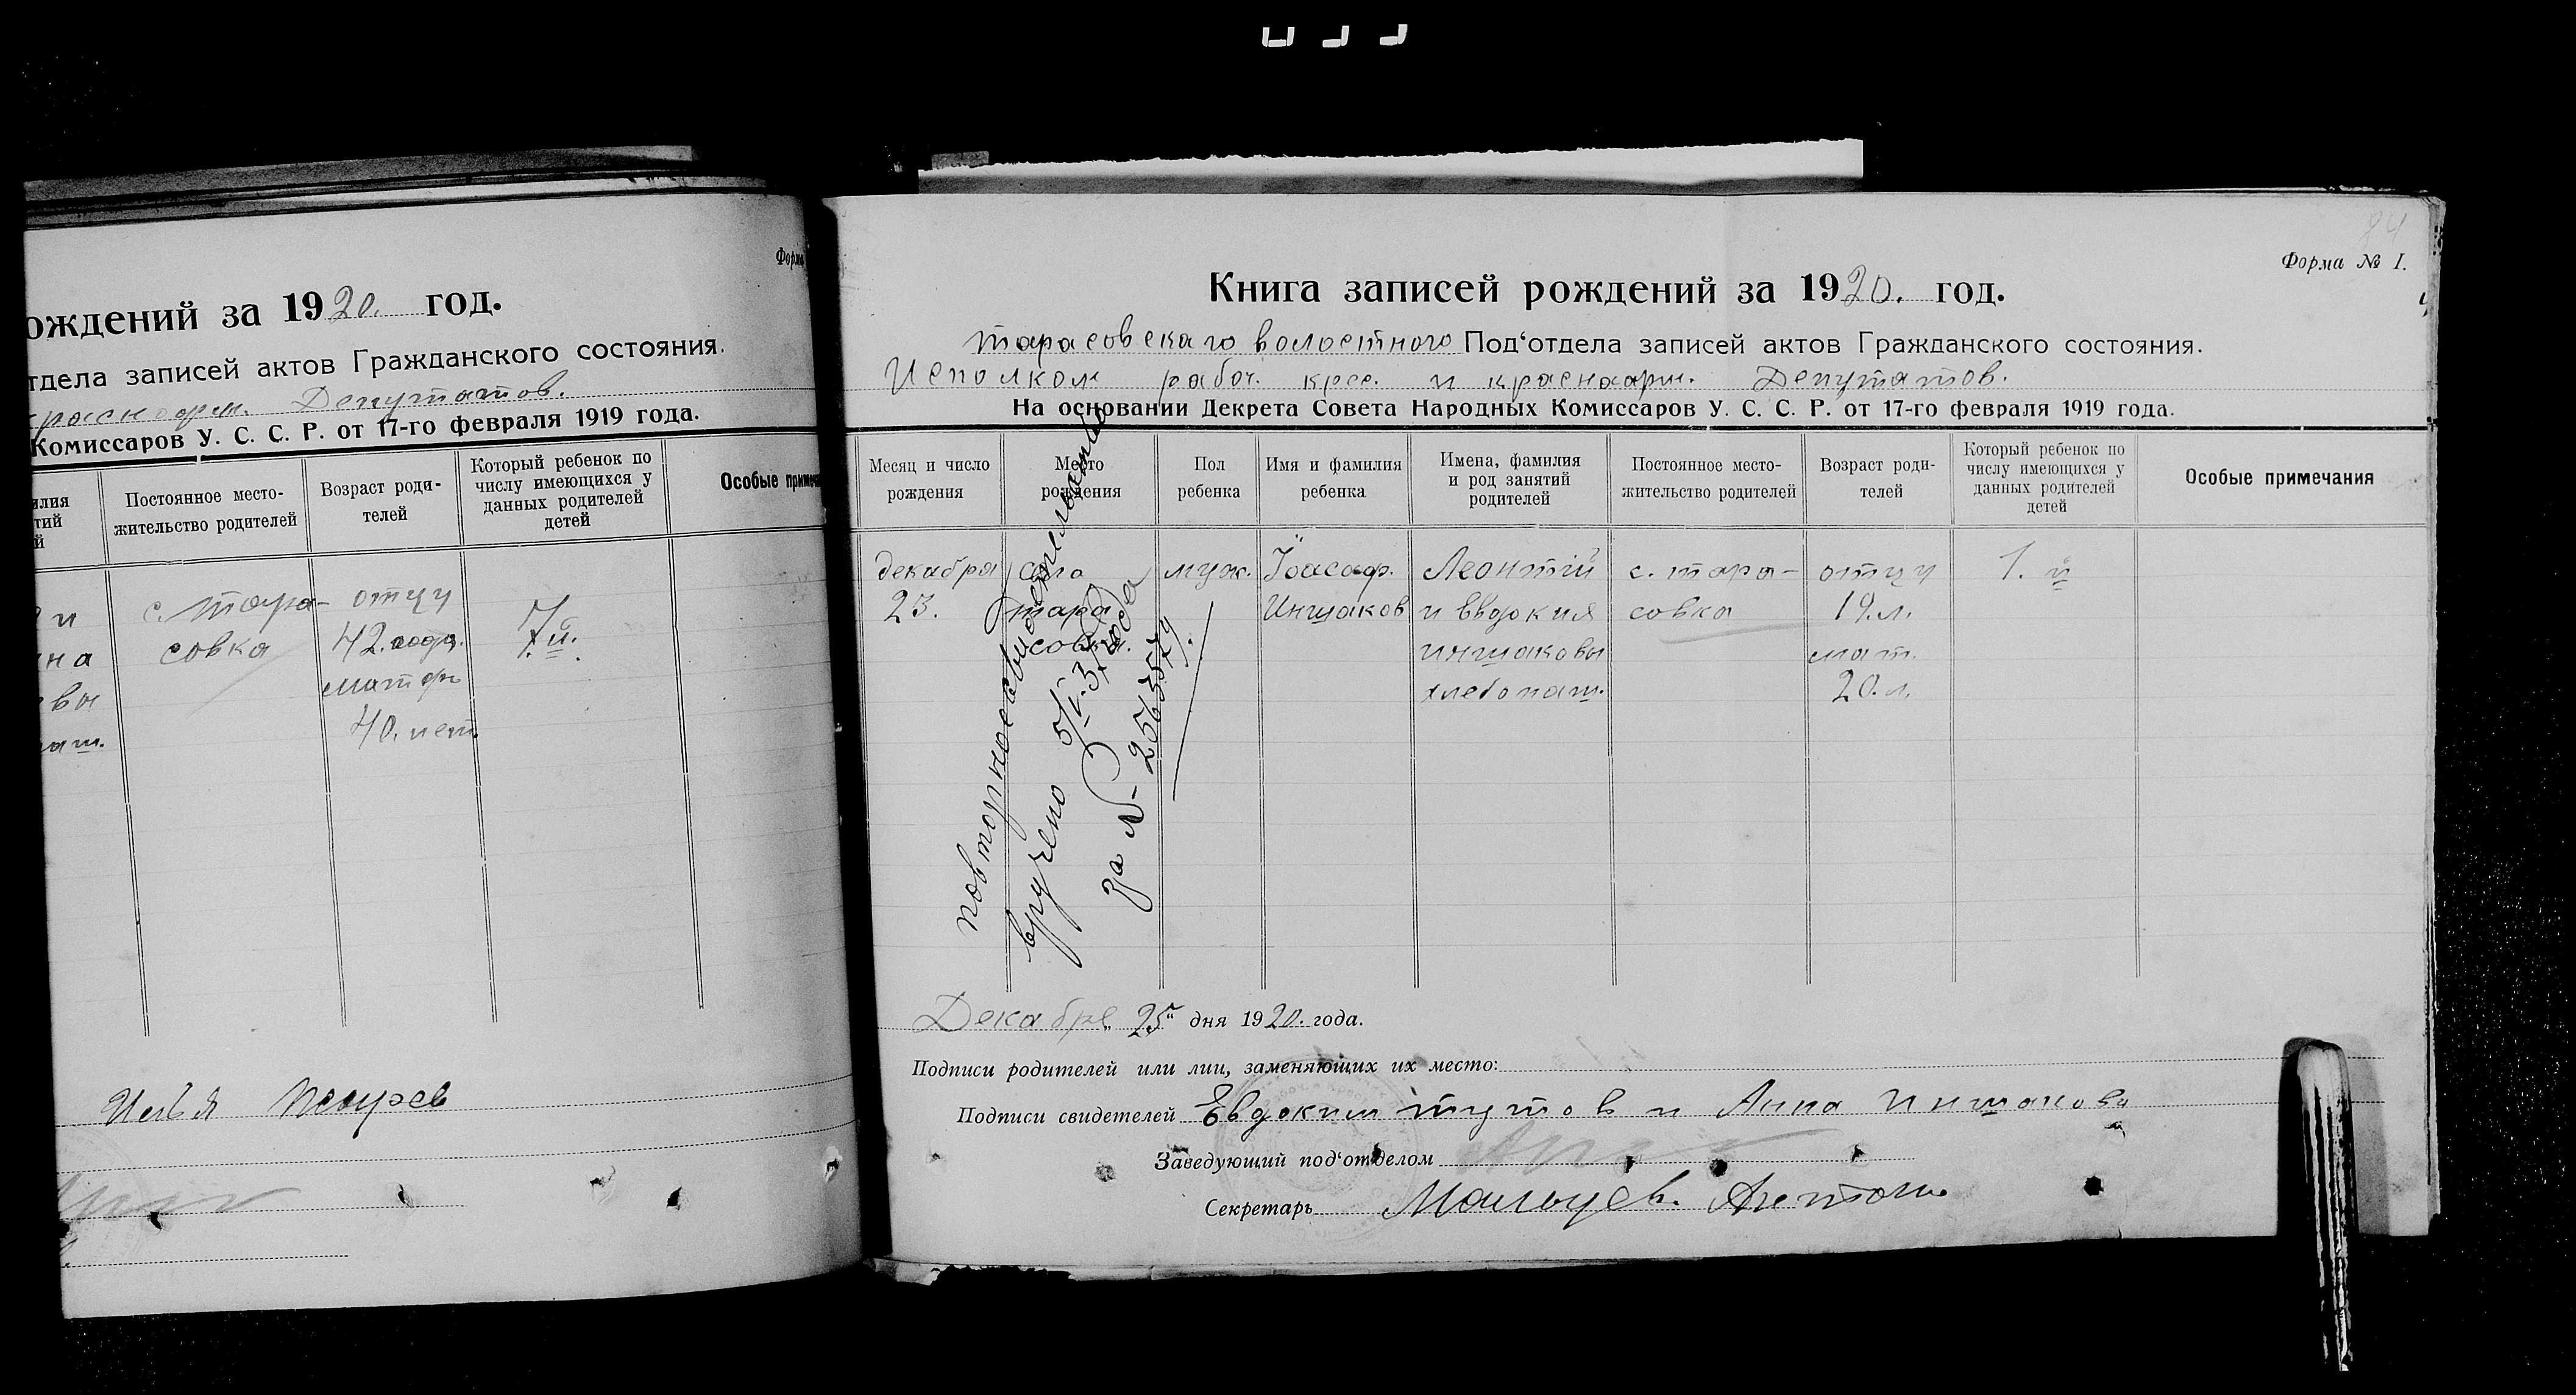 Форма
ождений за 1920. год.
тдела записей актов Гражданского состояния.
красноарм. Депутатов.
Комиссаров У. С. С. Р. от 17-го февраля 1919 года.
илия
тий
й
Постоянное место-
жительство родителей
Возраст роди-
телей
Который ребенок по
числу имеющихся у
данных родителей
детей
Особые примеча
и
на
вы
паш.
с. тара-
совка
отцу
42. года.
матери
40. лет.
7й.
Илья
84
Форма № I.
Книга записей рождений за 1920. год.
тарасовскаго волостного Под‘отдела записей актов Гражданского состояния.
Исполком рабоч. крес. и красноарм. Депутатов.
На основании Декрета Совета Народных Комиссаров У. С. С. Р. от 17-го февраля 1919 года.
Месяц и число
рождения
Место
рождения
Пол
ребенка
Имя и фамилия
ребенка
Имена, фамилия
и род занятий
родителей
Постоянное место-
жительство родителей
Возраст роди-
телей
Который ребенок по
числу имеющихся у
данных родителей
детей
Особые примечания
декабря
23.
село
тара
совка.
муж.
Іоасаф.
Иншаков
Леонтій
и Евдокия
иншаковы
хлебопаш.
с. тара-
совка
отцу
19. л.
мат.
20. л.
1. й
повторное свидетельство
вручено 5/V. 37 года
за № 2563579.
Декабре 25" дня 1920. года.
Подписи родителей или лиц, заменяющих их место:
Подписи свидетелей Евдоким тутов и Анна иншакова
Заведующий под‘отделом
Секретарь Мальцев. Антон.